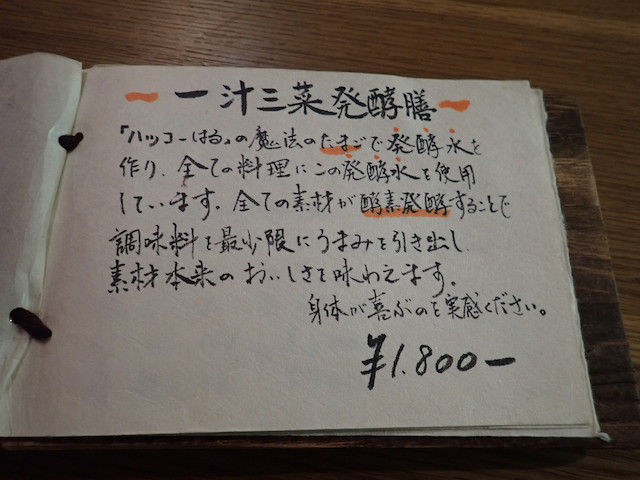 一汁三菜発酵膳
「ハッコーはる」の魔法のたまごで発酵水を
作り、全ての料理にこの発酵水を使用
しています。全ての素材が酵素発酵することで
調味料を最少限にうまみを引き出し
素材本来のおいしさを味わえます。
身体が喜ぶのを実感ください。
¥1.800ー